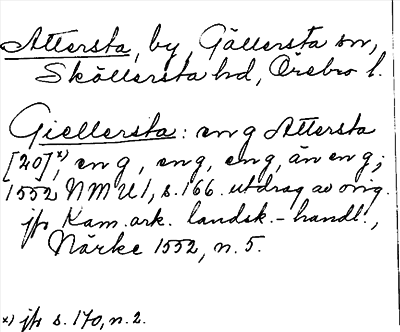 Attersta, by, Gällersta sn,
Sköllersta hd, Örebro l.
Giellersta: eng Attersta
[20]x), eng, eng, eng, än eng;
1552 NMU1, s. 166. utdrag av orig.
jfr Kam. ark. landsk.-handl.,
Närke 1552, n. 5.
x) jfr s. 170, n. 2.